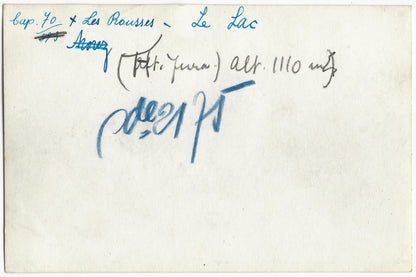 Cap. 70 x Les Rousses - Le Lac
(Ht. Jura) Alt. 1110 m
de 2175